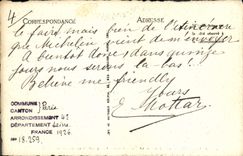 4/
CORRESPONDANCE
ADRESSE
le faire mais bien de l'itinéraire
que Michelin vient de m'envoyer
A bientôt donc, dans quinze
jours nous serons là-bas!
Believe me friendly
Yours
E Mottar
COMMUNE
CANTON Paris
ARRONDISSEMENT
DÉPARTEMENT Seine
FRANCE 1926
18.259